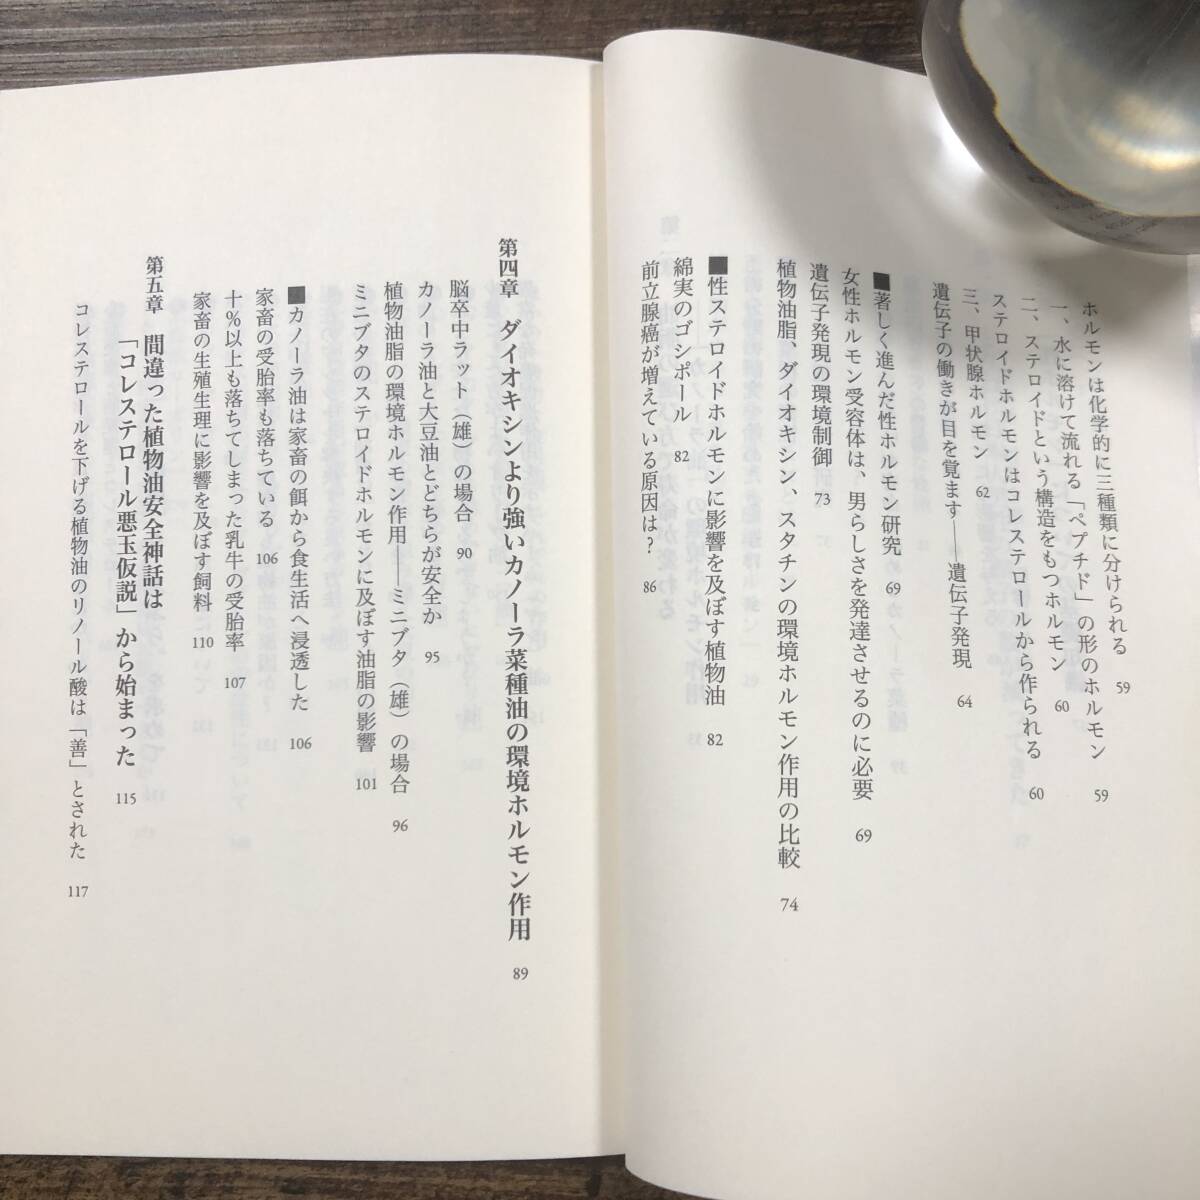 ホルモンは化学的に三種類に分けられる 59
一、水に溶けて流れる「ペプチド」の形のホルモン 59
二、ステロイドという構造をもつホルモン 60
ステロイドホルモンはコレステロールから作られる 60
三、甲状腺ホルモン 62
遺伝子の働きが目を覚ます──遺伝子発現 64
■著しく進んだ性ホルモン研究 69
女性ホルモン受容体は、男らしさを発達させるのに必要 69
遺伝子発現の環境制御 73
植物油脂、ダイオキシン、スタチンの環境ホルモン作用の比較 74
■性ステロイドホルモンに影響を及ぼす植物油 82
綿実のゴシポール 82
前立腺癌が増えている原因は? 86
第四章 ダイオキシンより強いカノーラ菜種油の環境ホルモン作用 89
脳卒中ラット（雄）の場合 90
カノーラ油と大豆油とどちらが安全か 95
植物油脂の環境ホルモン作用──ミニブタ（雄）の場合 96
ミニブタのステロイドホルモンに及ぼす油脂の影響 101
■カノーラ油は家畜の餌から食生活へ浸透した 106
家畜の受胎率も落ちている 106
十%以上も落ちてしまった乳牛の受胎率 107
家畜の生殖生理に影響を及ぼす飼料 110
第五章 間違った植物油安全神話は
「コレステロール悪玉仮説」から始まった 115
コレステロールを下げる植物油のリノール酸は「善」とされた 117